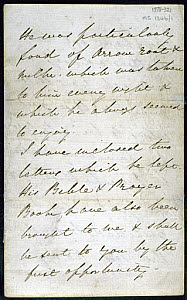 1978-321
He was particularly
fond of Arrow root &
milk. which was taken
to him every night &
which he always seemed
to enjoy.
I have inclosed two
letters which he left.
His Bible & Prayer
Book have also been
brought to me & shall
be sent to you by the
first opportunity